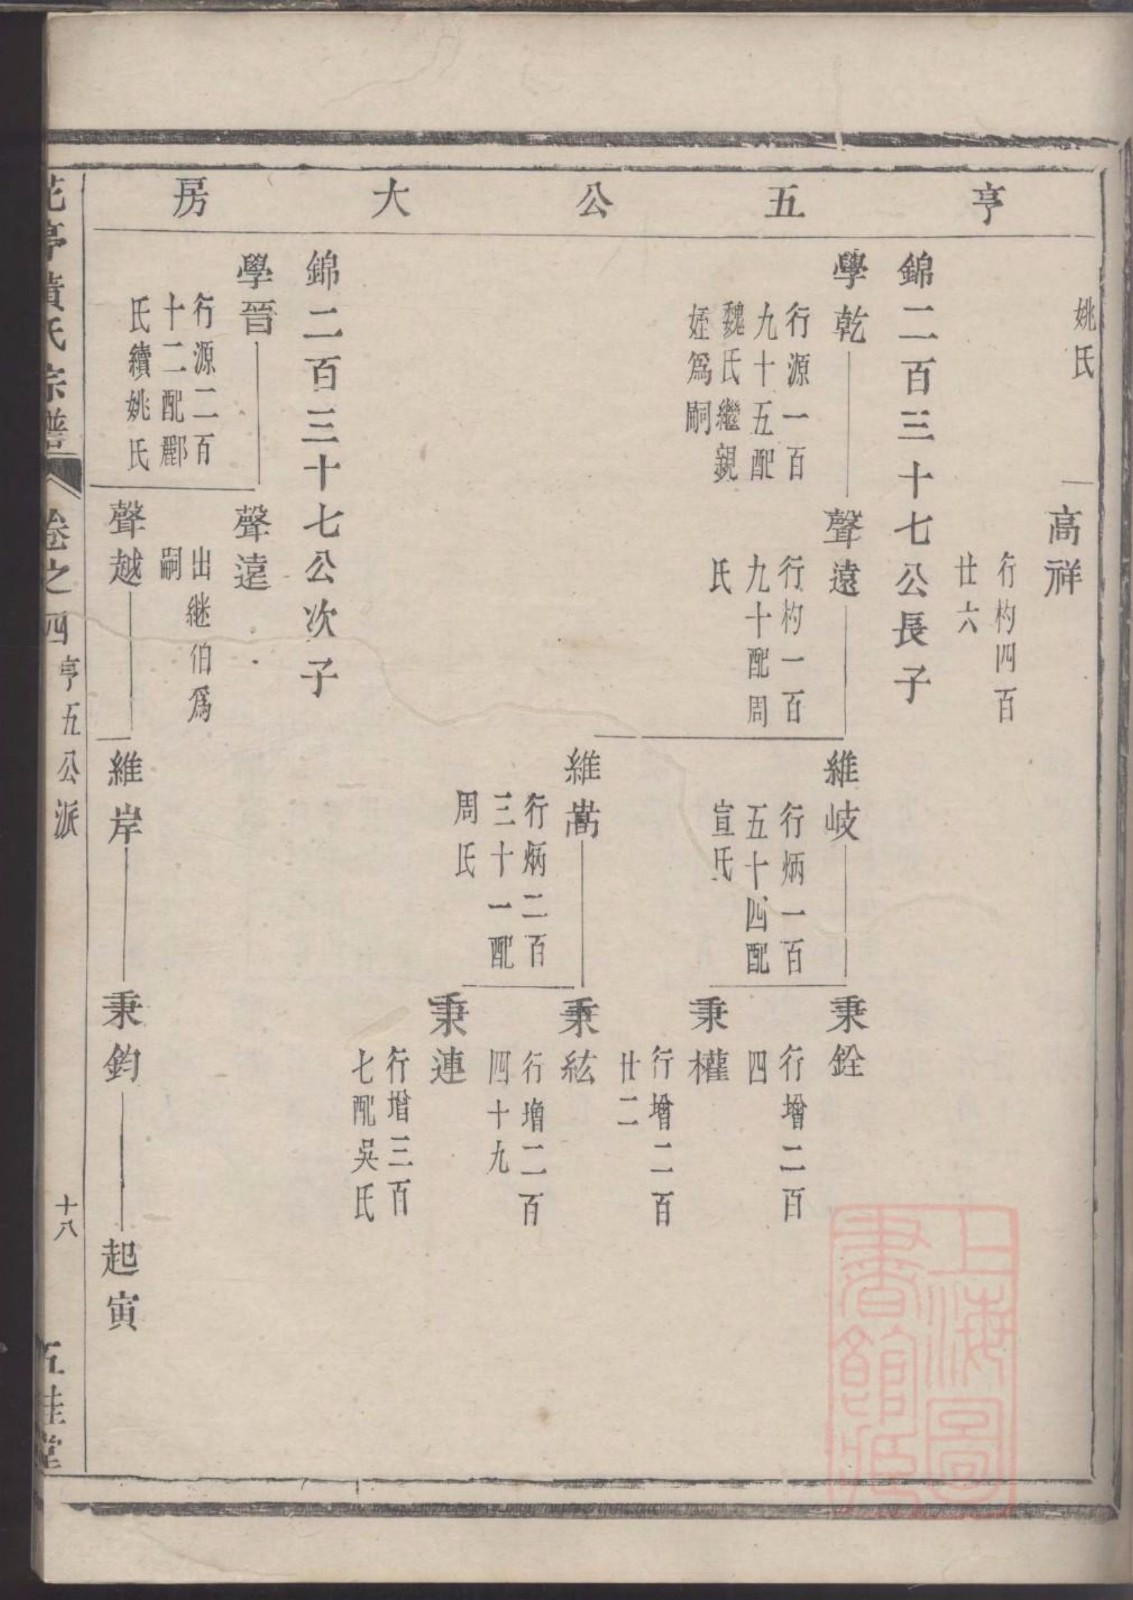 亨五公大房
姚氏
高祥
行杓四百
廿六
錦二百三十七公長子
學乾
行源一百
九十五配
魏氏繼親
姪爲嗣
聲遠
行杓一百
九十配周
氏
維岐
行炳一百
五十四配
宣氏
秉銓
行增二百
四
秉權
行增二百
廿二
維嵩
行炳二百
三十一配
周氏
秉紘
行增二百
四十九
秉連
行增三百
七配吳氏
錦二百三十七公次子
學晉
行源二百
十二配酈
氏續姚氏
聲遠
出継伯爲
嗣
聲越
維岸
秉鈞
起寅
亭黃氏宗譜
卷之四
亨五公派
十八
五桂堂
上海圖
書館藏